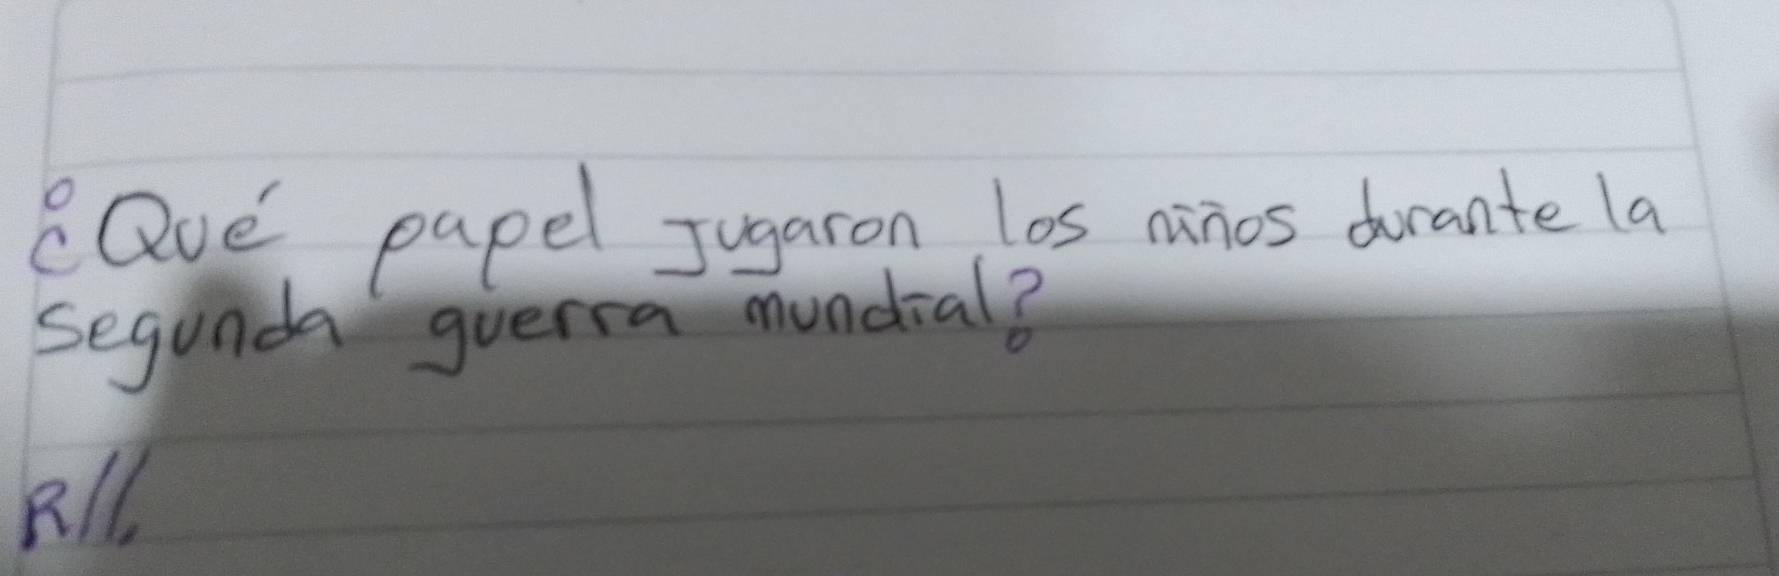 ¿Qué papel jugaron los niños durante la
segunda guerra mundial?
R//.